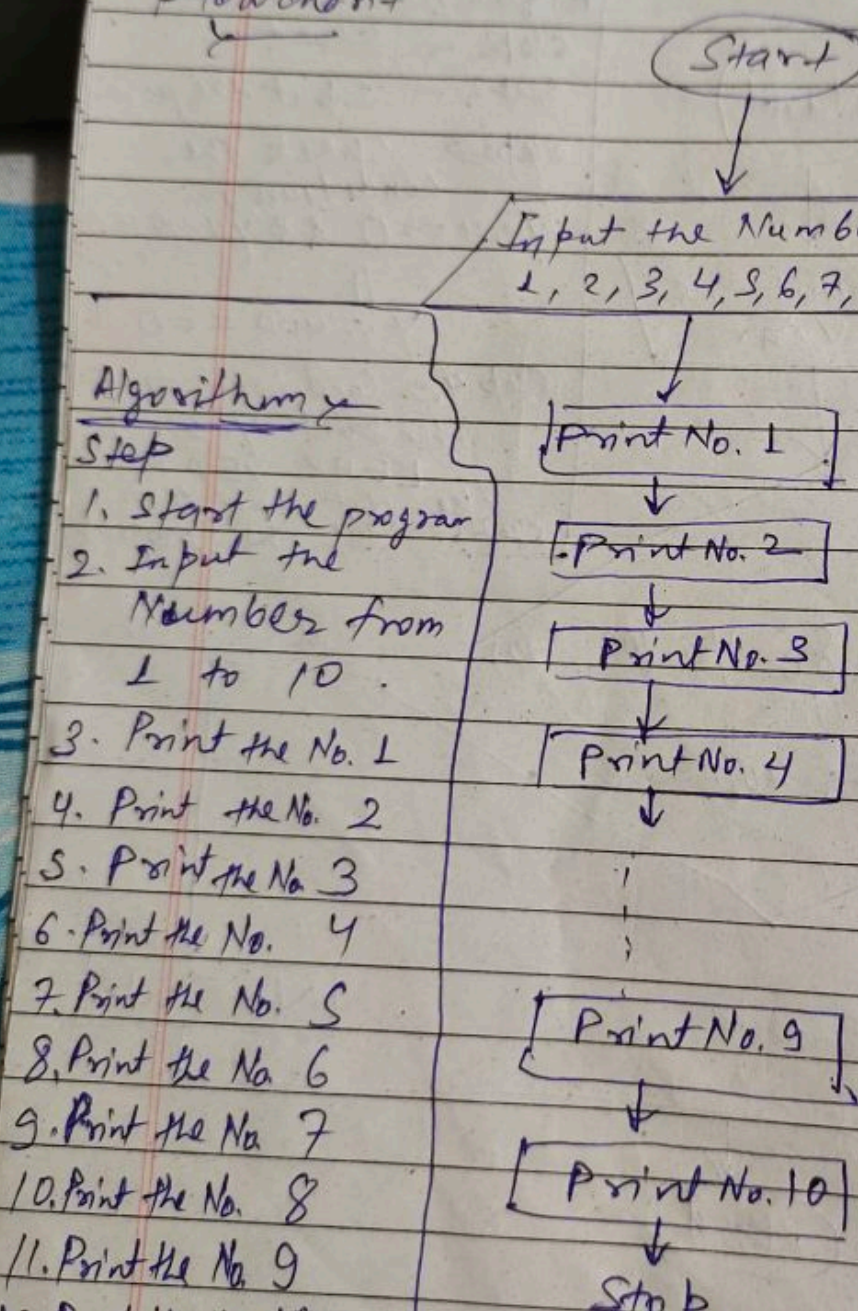 Flowchart
Start
Input the Numbe
1, 2, 3, 4, 5, 6, 7,
Print No. 1
Print No. 2
Print No. 3
Print No. 4
Print No. 9
Print No. 10
Stop
Algorithem
Step
1. Start the program
2. Input the
Number from
1 to 10.
3. Print the No. 1
4. Print the No. 2
5. Print the No. 3
6. Print the No. 4
7. Print the No. 5
8. Print the No. 6
9. Print the No. 7
10. Print the No. 8
11. Print the No. 9